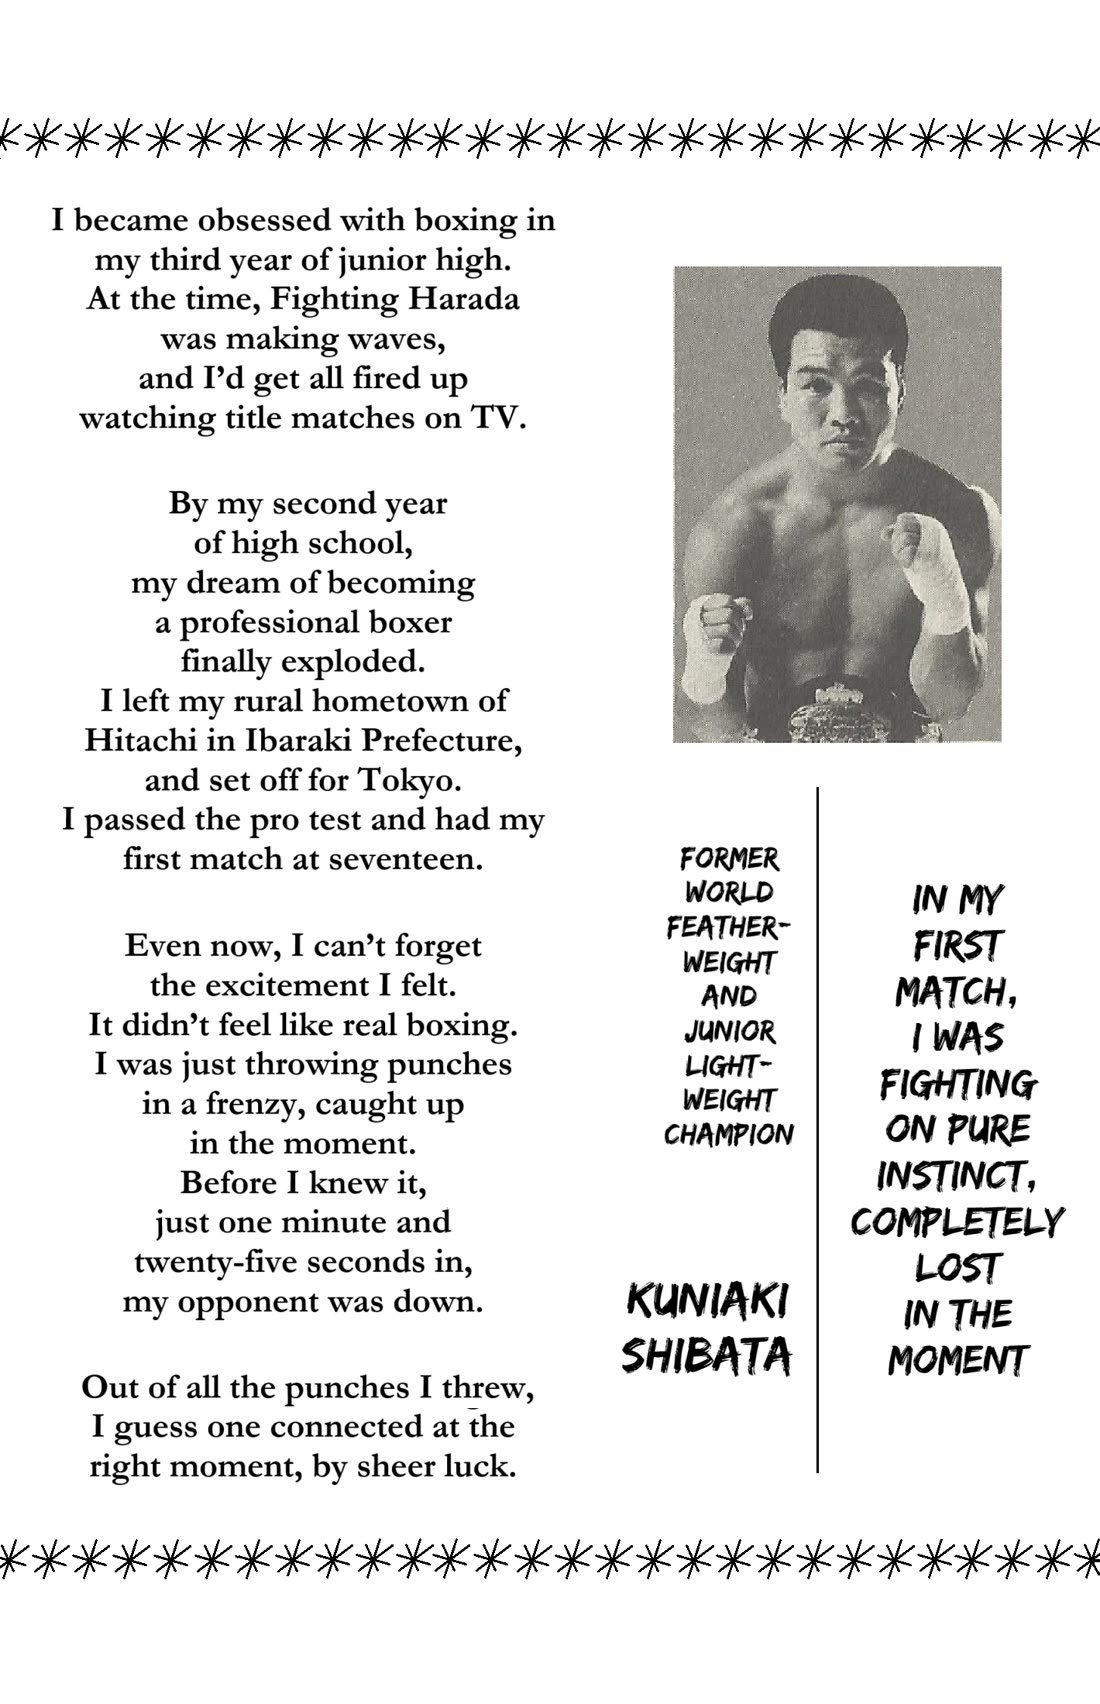 I became obsessed with boxing in
my third year of junior high.
At the time, Fighting Harada
was making waves,
and I'd get all fired up
watching title matches on TV.
By my second year
of high school,
my dream of becoming
a professional boxer
finally exploded.
I left my rural hometown of
Hitachi in Ibaraki Prefecture,
and set off for Tokyo.
I passed the pro test and had my
first match at seventeen.
Even now, I can't forget
the excitement I felt.
It didn't feel like real boxing.
I was just throwing punches
in a frenzy, caught up
in the moment.
Before I knew it,
just one minute and
twenty-five seconds in,
my opponent was down.
Out of all the punches I threw,
I guess one connected at the
right moment, by sheer luck.
FORMER
WORLD
FEATHER-
WEIGHT
AND
JUNIOR
LIGHT-
WEIGHT
CHAMPION
KUNIAKI
SHIBATA
IN MY
FIRST
MATCH,
I WAS
FIGHTING
ON PURE
INSTINCT,
COMPLETELY
LOST
IN THE
MOMENT